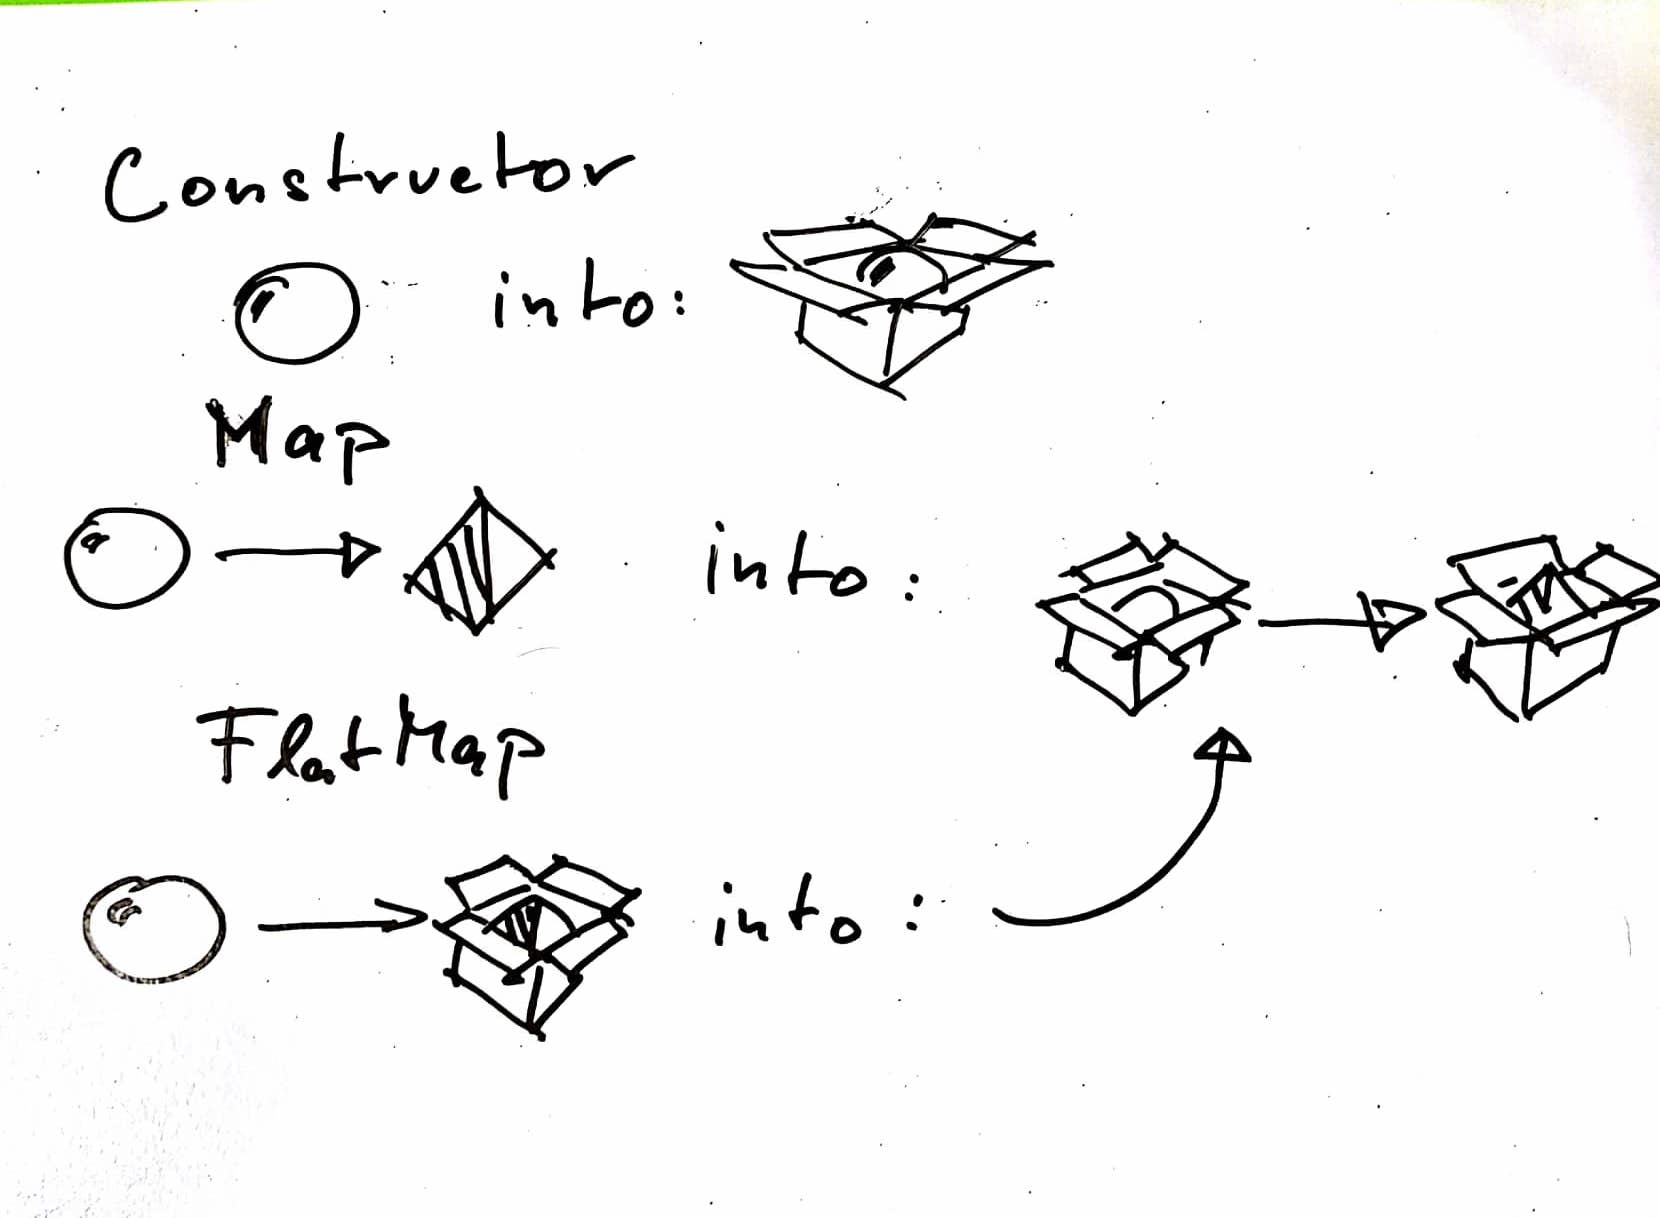 Constructor
into:
Map
into:
FlatMap
into: